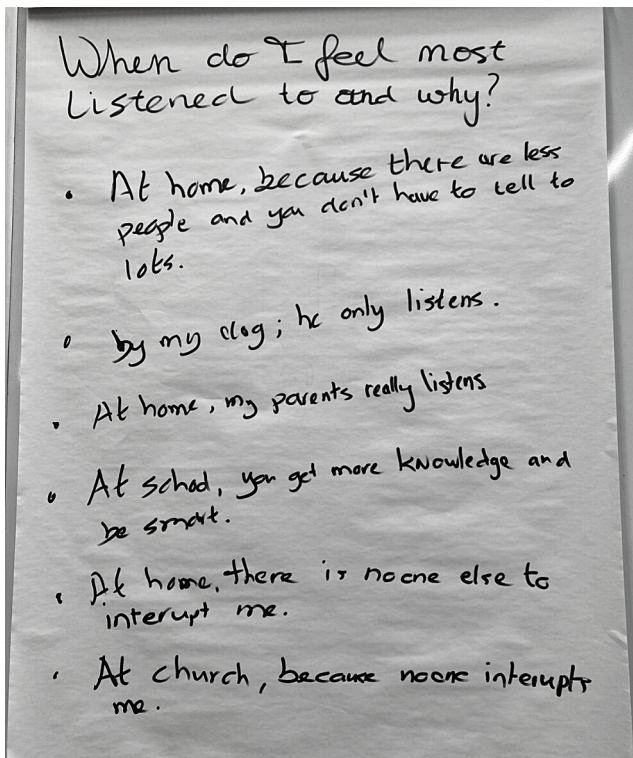 When do I feel most
Listened to and why?
• At home, because there are less
people and you don't have to tell to
lots.
• by my dog; he only listens.
• At home, my parents really listens
• At school, you get more knowledge and
be smart.
• At home, there is noone else to
interupt me.
• At church, because noone interupts
me.